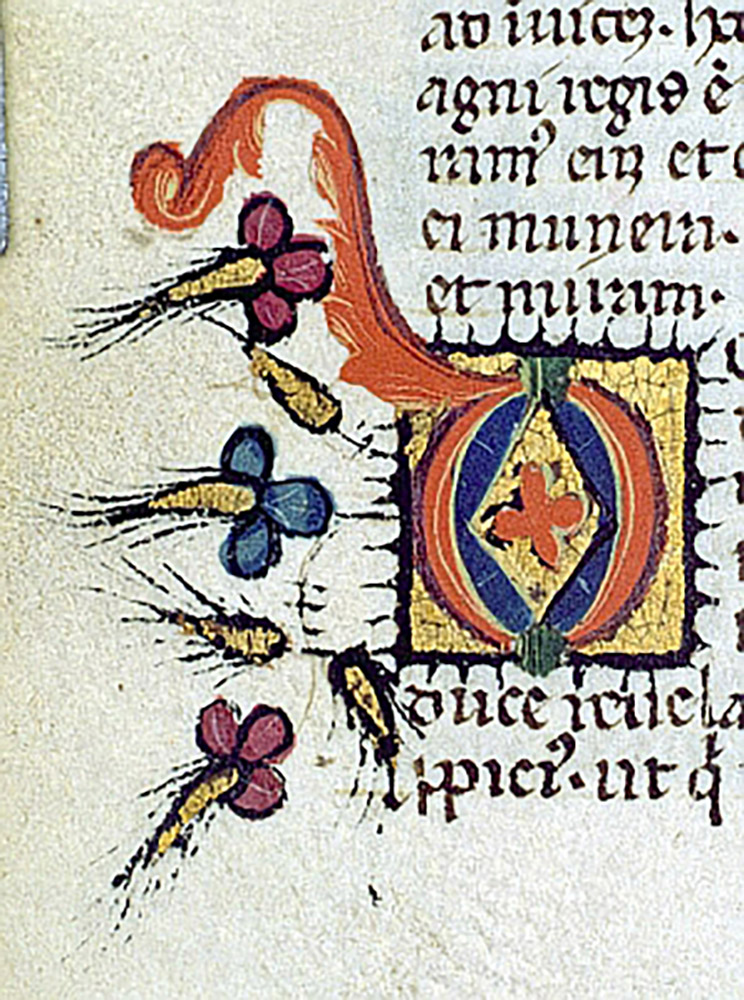 ad inuicez. ho
agni regis ē
ramꝰ euz et o
ei munera.
et mirram.
D
duce reuela
ppiciꝰ. ut q̇